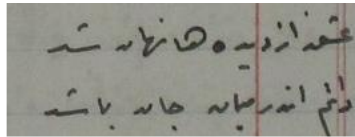 عشق از دیده ها نهان شد
دانم اندر میان جان باشد